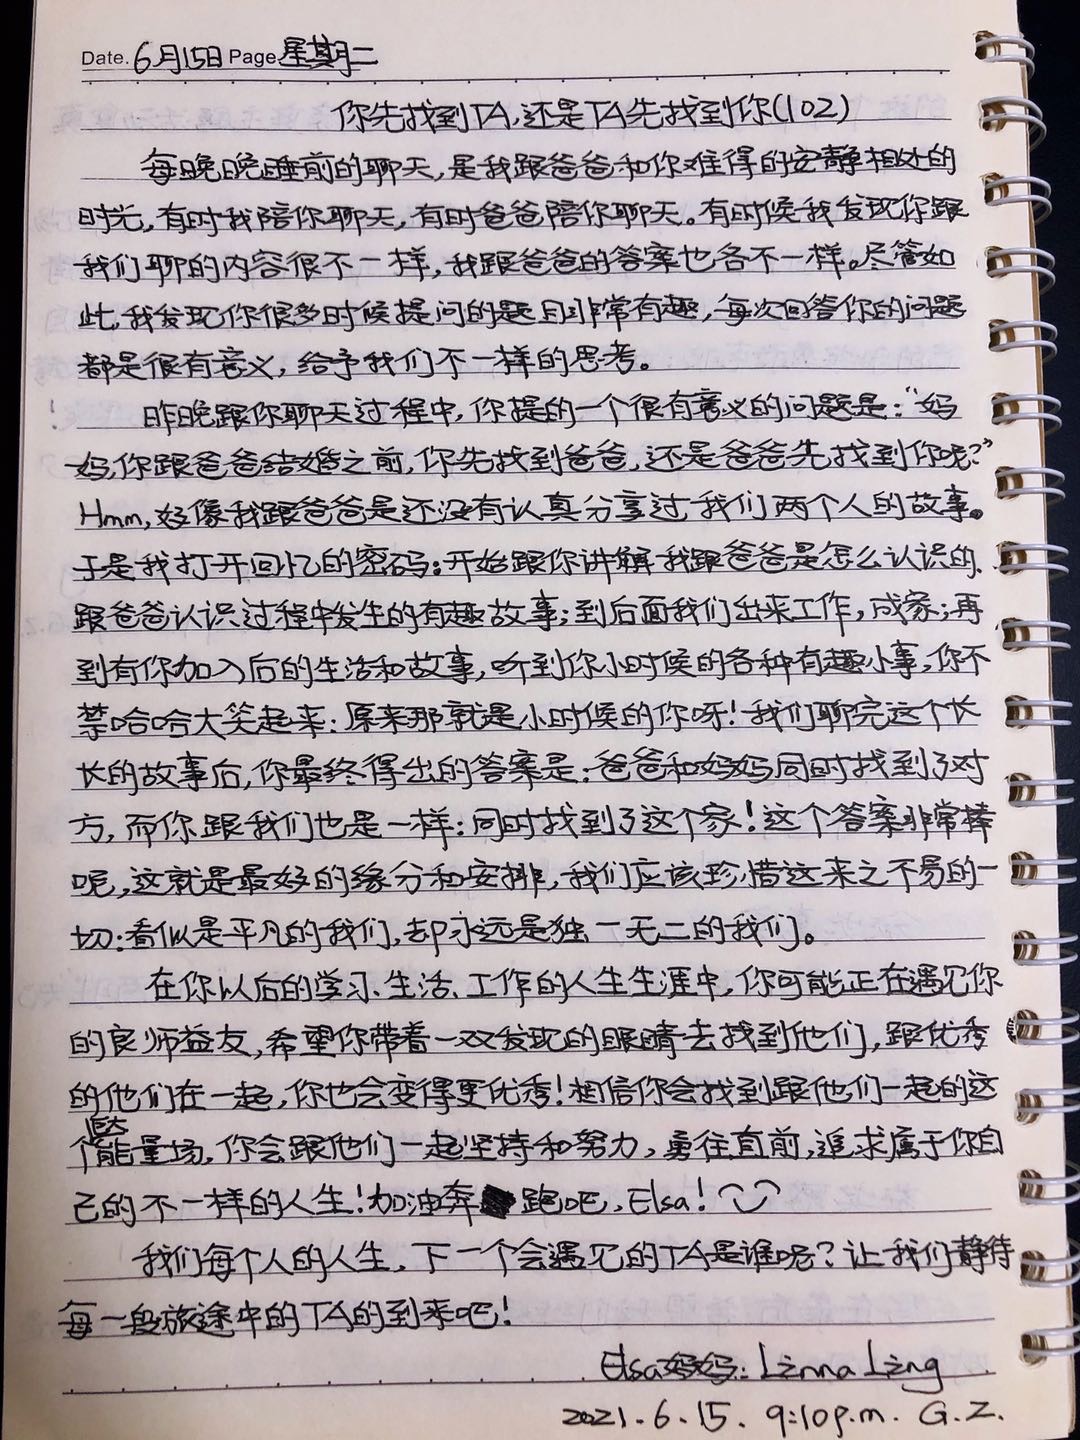 Date. 6月15日 Page 星期二
你先找到TA,还是TA先找到你(102)
每晚睡前的聊天,是我跟爸爸和你难得的安静相处的
时光,有时我陪你聊天,有时爸爸陪你聊天。有时候我发现你跟
我们聊的内容很不一样,我跟爸爸的答案也各不一样。尽管如
此,我发现你很多时候提问的题目非常有趣,每次回答你的问题
都是很有意义,给予我们不一样的思考。
昨晚跟你聊天过程中,你提的一个很有意义的问题是:“妈
妈,你跟爸爸结婚之前,你先找到爸爸,还是爸爸先找到你呢?”
Hmm,好像我跟爸爸是还没有认真分享过我们两个人的故事。
于是我打开回忆的密码:开始跟你讲解我跟爸爸是怎么认识的.
跟爸爸认识过程中发生的有趣故事;到后面我们出来工作,成家;再
到有你加入后的生活和故事,听到你小时候的各种有趣小事,你不
禁哈哈大笑起来:原来那就是小时候的你呀!我们聊完这个长
长的故事后,你最终得出的答案是:爸爸和妈妈同时找到了对
方,而你跟我们也是一样:同时找到了这个家!这个答案非常棒
呢,这就是最好的缘分和安排,我们应该珍惜这来之不易的一
切:看似是平凡的我们,却永远是独一无二的我们。
在你以后的学习、生活、工作的人生生涯中,你可能正在遇见你
的良师益友,希望你带着一双发现的眼睛去找到他们,跟优秀
的他们在一起,你也会变得更优秀!相信你会找到跟他们一起的这
个能量场,你会跟他们一起坚持和努力,勇往直前,追求属于你自
己的不一样的人生!加油奔跑吧,Elsa!
我们每个人的人生,下一个会遇见的TA是谁呢?让我们静待
每一段旅途中的TA的到来吧!
Elsa妈妈:Linna Ling
2021.6.15. 9:10p.m. G.Z.